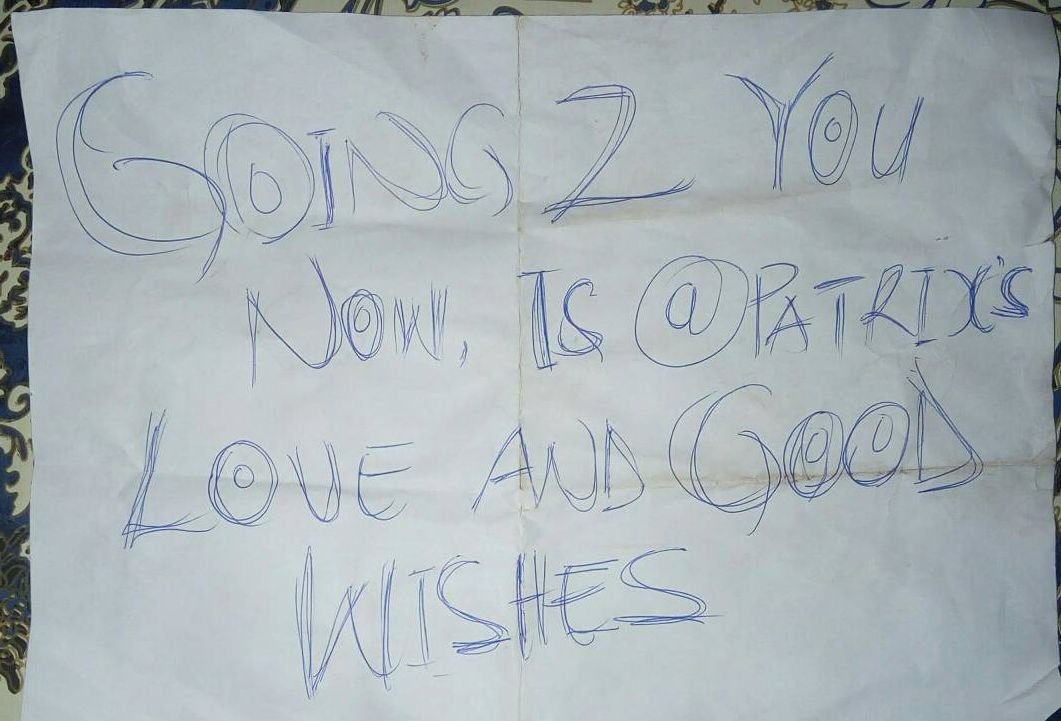 GOING 2 YOU
NOW, IS @PATRIX'S
LOVE AND GOOD
WISHES